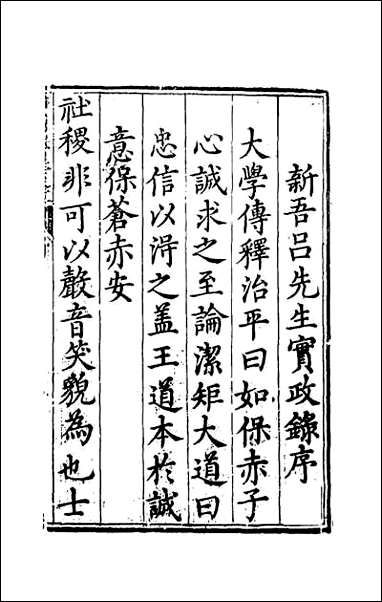 新吾呂先生實政錄序
大學傳釋治平曰如保赤子
心誠求之至論潔矩大道曰
忠信以淂之盖王道本扵誠
意保蒼赤安
社稷非可以嚴音笑貌為也士